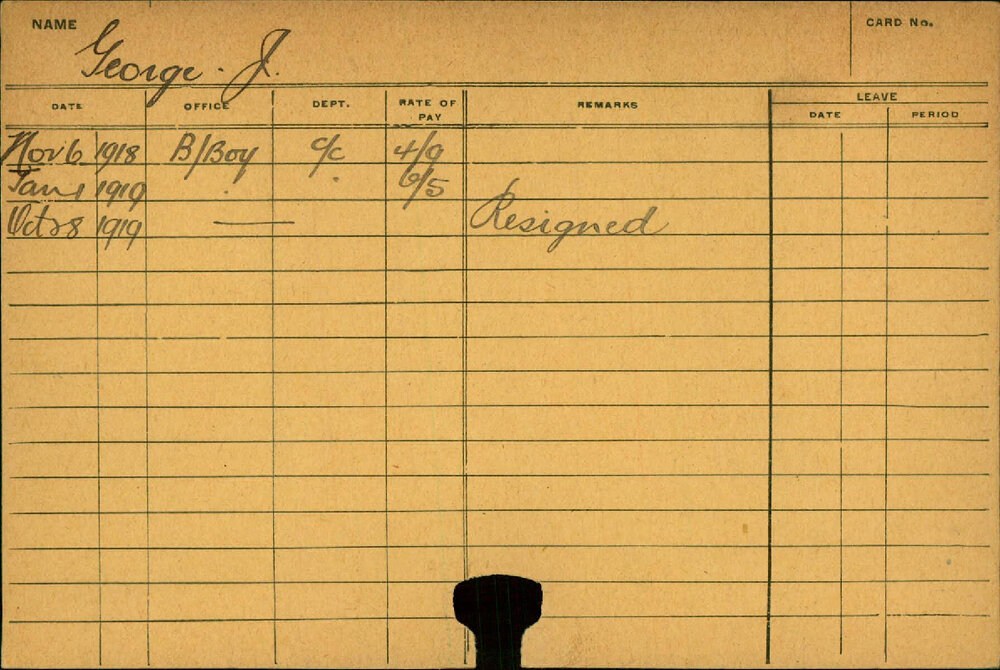 NAME George. J. CARD No.
DATE OFFICE DEPT. RATE OF PAY REMARKS LEAVE
DATE PERIOD
Nov 6 1918 B/Boy c/c 4/9
Jan 1 1919 " " 6/5
Oct 28 1919 — Resigned